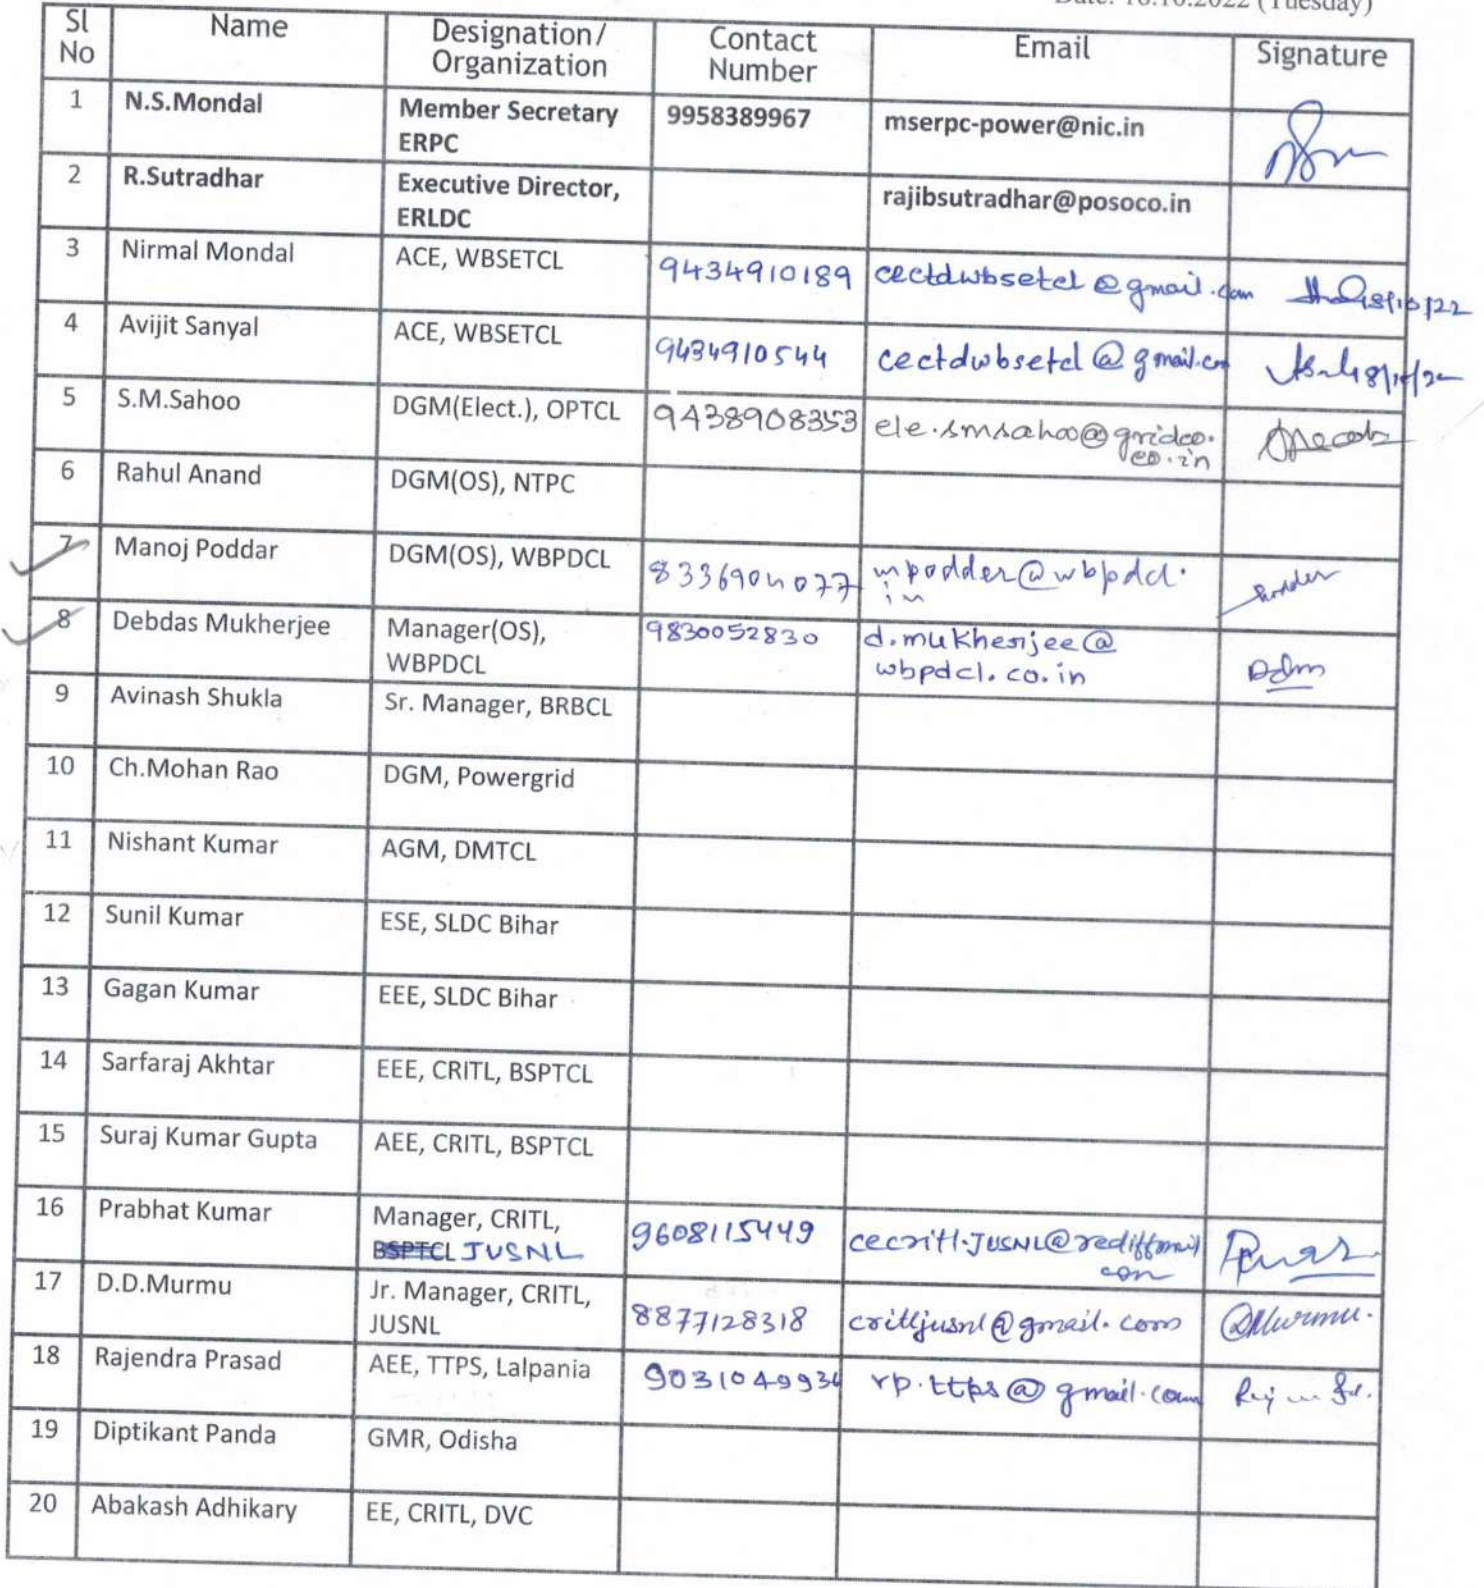 Date: 18.10.2022 (Tuesday)
Sl No Name Designation/ Organization Contact Number Email Signature
1 N.S.Mondal Member Secretary ERPC 9958389967 mserpc-power@nic.in
2 R.Sutradhar Executive Director, ERLDC rajibsutradhar@posoco.in
3 Nirmal Mondal ACE, WBSETCL 9434910189 cectdwbsetcl@gmail.com 18/10/22
4 Avijit Sanyal ACE, WBSETCL 9434910544 cectdwbsetcl@gmail.com
5 S.M.Sahoo DGM(Elect.), OPTCL 9438908353 ele.smsahoo@gridco.co.in
6 Rahul Anand DGM(OS), NTPC
7 Manoj Poddar DGM(OS), WBPDCL 8336904077 mpodder@wbpdcl.in Podder
8 Debdas Mukherjee Manager(OS), WBPDCL 9830052830 d.mukherjee@wbpdcl.co.in
9 Avinash Shukla Sr. Manager, BRBCL
10 Ch.Mohan Rao DGM, Powergrid
11 Nishant Kumar AGM, DMTCL
12 Sunil Kumar ESE, SLDC Bihar
13 Gagan Kumar EEE, SLDC Bihar
14 Sarfaraj Akhtar EEE, CRITL, BSPTCL
15 Suraj Kumar Gupta AEE, CRITL, BSPTCL
16 Prabhat Kumar Manager, CRITL, BSPTCL JUSNL 9608115449 cecritl.JUSNL@rediffmail.com
17 D.D.Murmu Jr. Manager, CRITL, JUSNL 8877128318 critljusnl@gmail.com DMurmu.
18 Rajendra Prasad AEE, TTPS, Lalpania rp.ttps@gmail.com
19 Diptikant Panda GMR, Odisha
20 Abakash Adhikary EE, CRITL, DVC